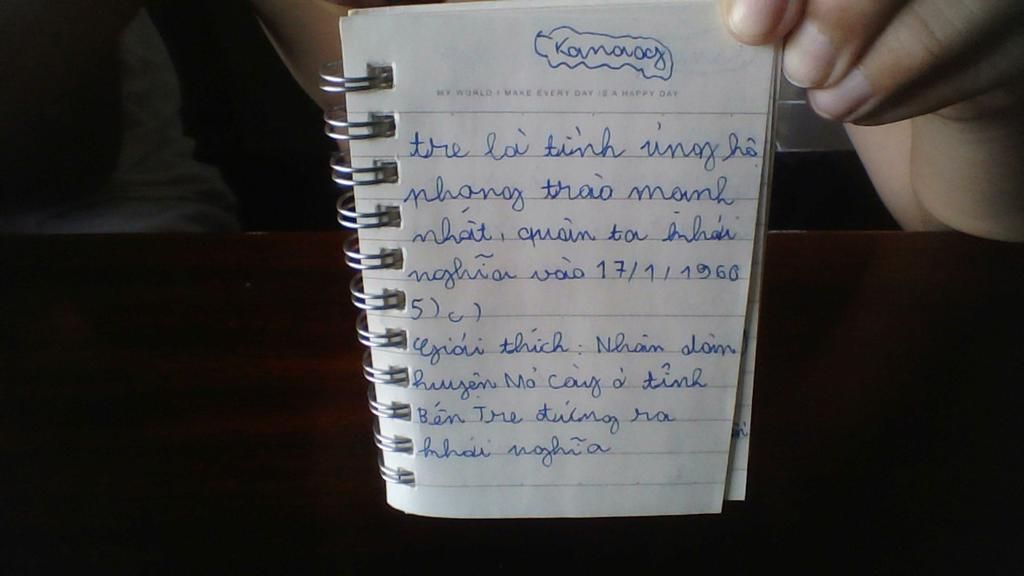 Kanaoy
MY WORLD I MAKE EVERY DAY IS A HAPPY DAY
tre là tỉnh ủng hộ
phong trào mạnh
nhất, quân ta khởi
nghĩa vào 17/1/1960
5) c)
Giải thích: Nhân dân
huyện Mỏ Cày ở tỉnh
Bến Tre đứng ra
khởi nghĩa